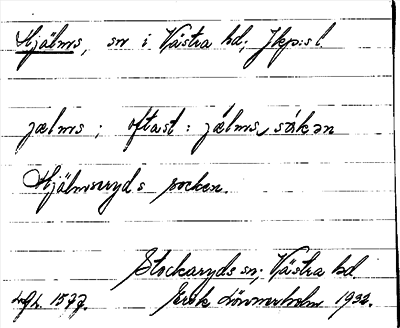 Hjälms, sn i Västra hd; Jkp:s l.
jælms ; oftast : jælms såkən
Hjälmseryds socken.
Stockaryds sn; Västra hd
Erik Lönnerholm 1932.